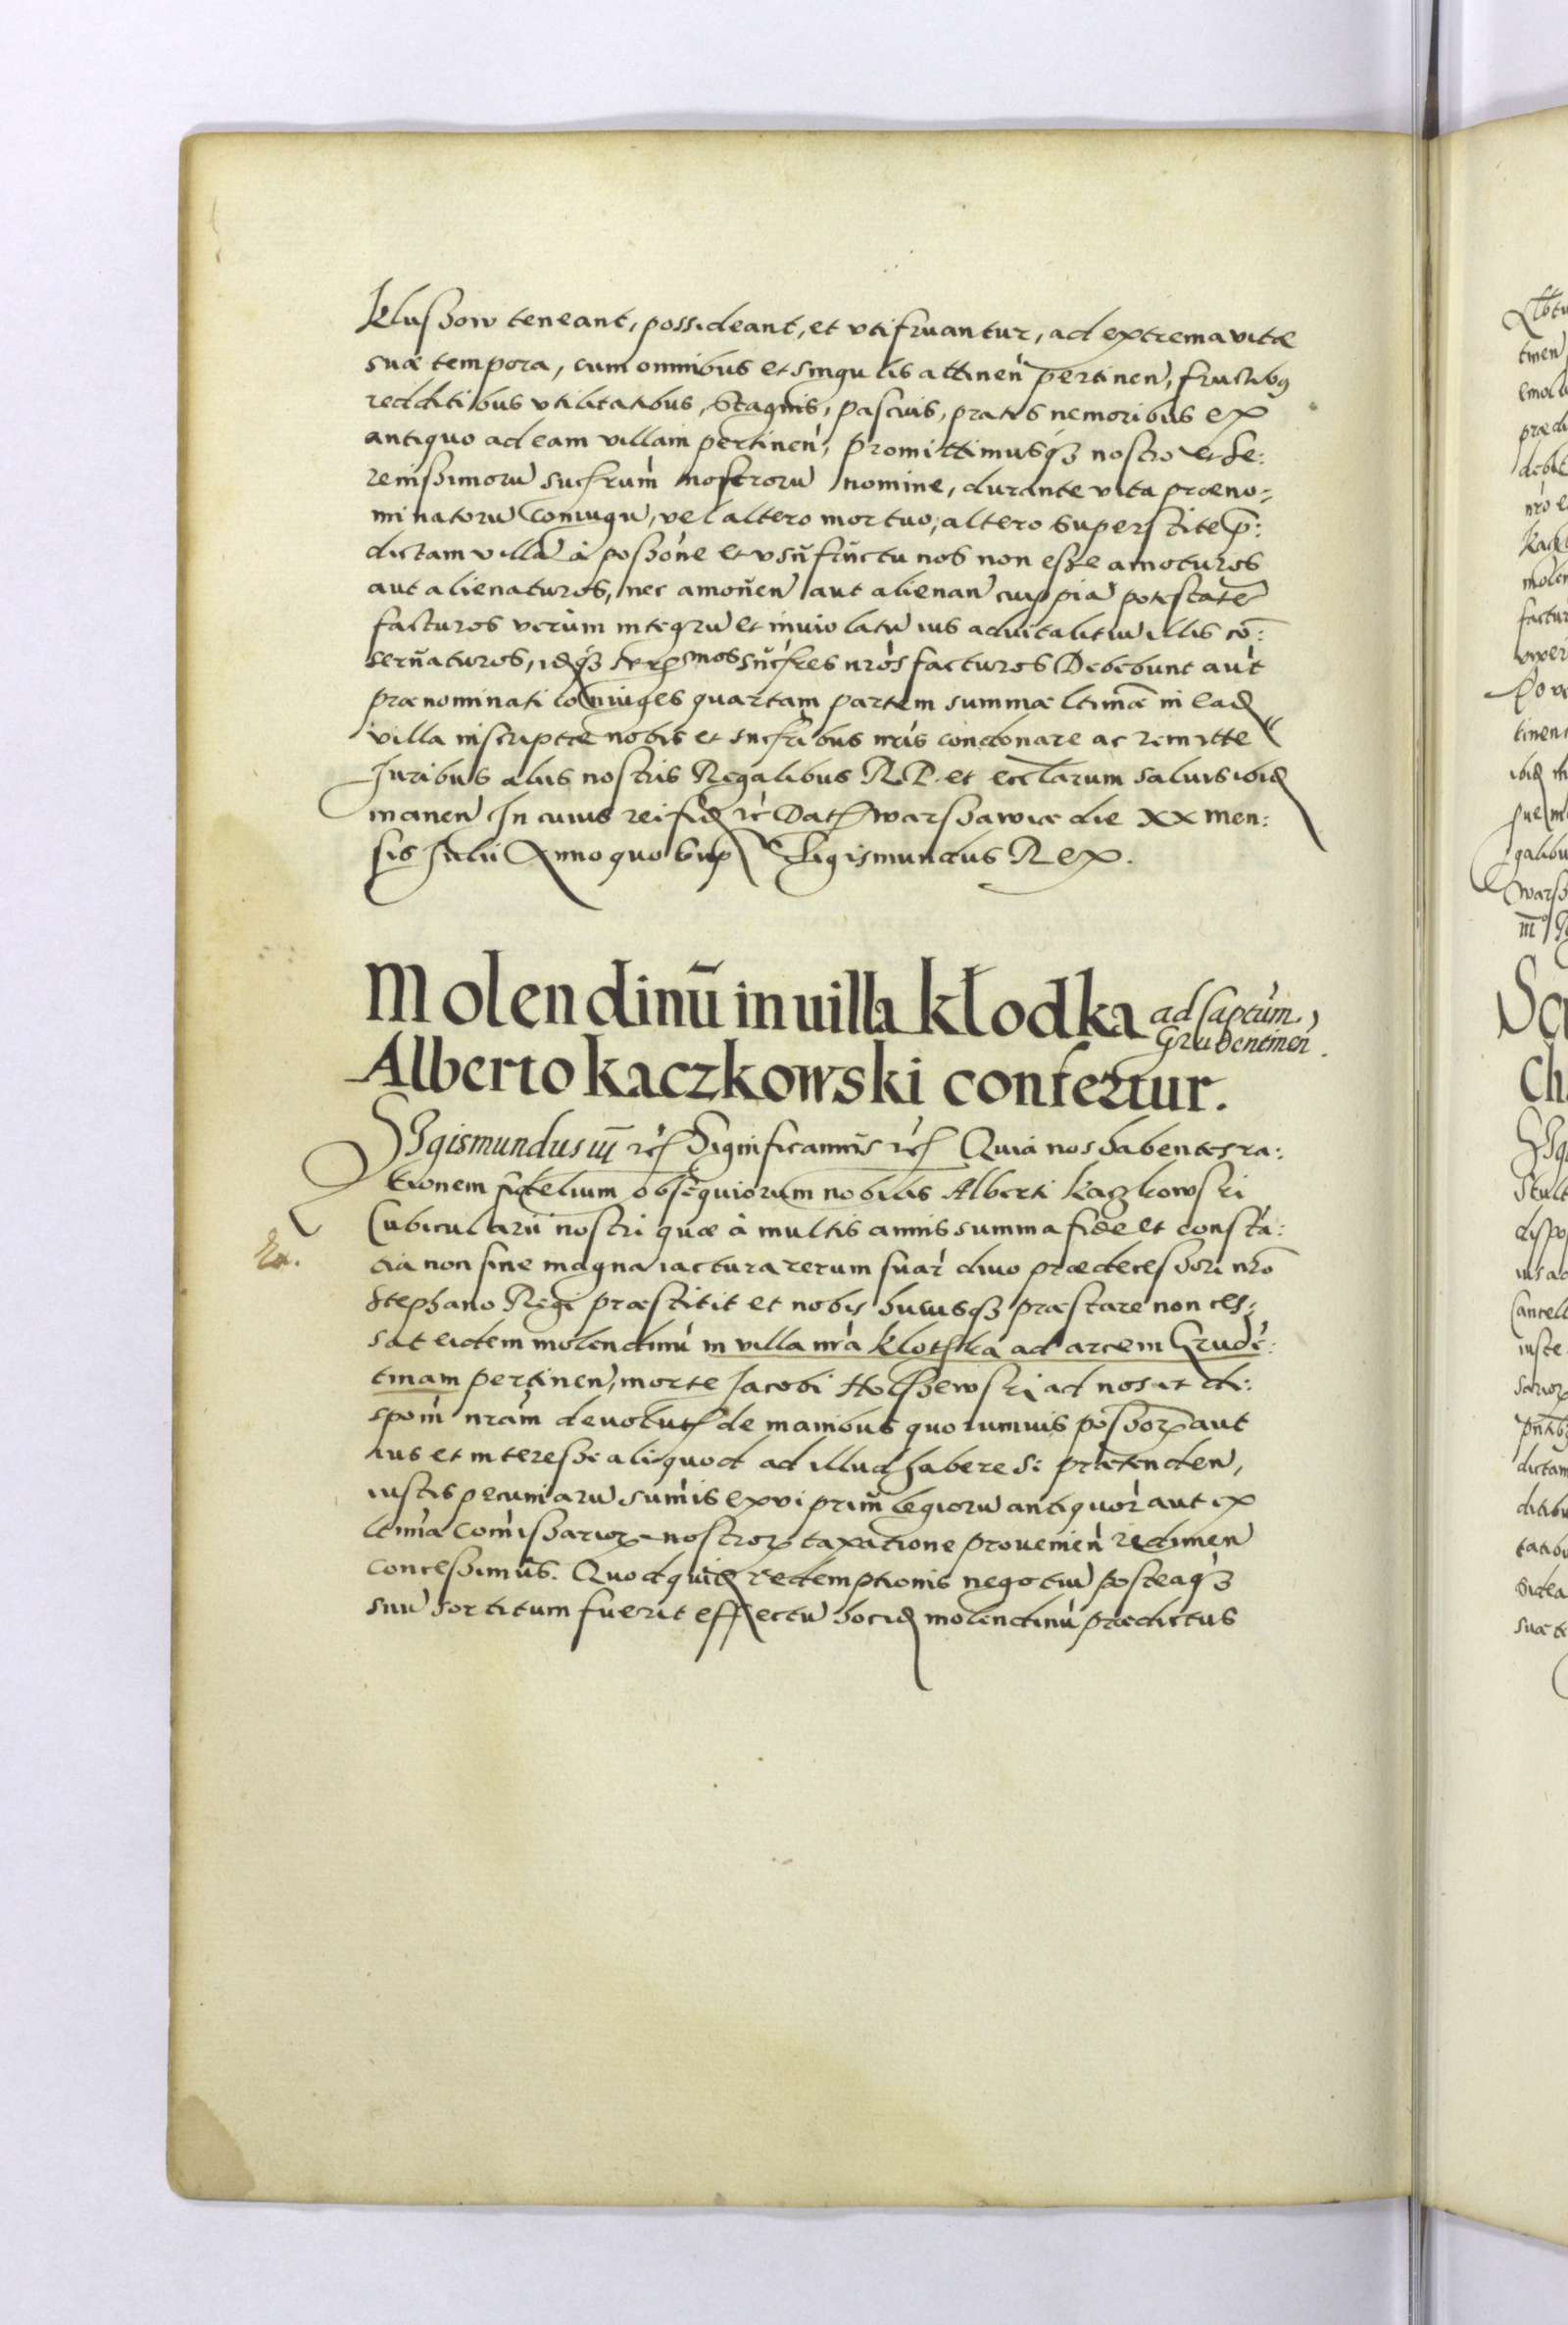 Klusschow teneant, possideant, et vtifruantur, ad extrema vitæ
suæ tempora, cum omnibus et singulis attinen̄ pertinen̄, fructibus
redditibus vtilitatibus, stagnis, pascuis, pratis nemoribus ex
antiquo ad eam villam pertinen̄, promittimusq₃ nostro et Se:
renissimorū nostrorū nomine, durante vita præno:
minatorū coniugū, vel altero mortuo, altero superstite p̄:
dictam villā à possōne et vsūfructu nos non esse amoturos
aut alienaturos, nec amouen̄ aut alienan̄ cuippiā potestatē
facturos verùm integrū et inuiolatū ius aduitalitiū illis cō:
seruaturos, idq₃ nr̄os facturos Debebunt aut̄
prænominati coniuges quartam partem summæ in ead
villa inscriptæ nobis et nr̄is condonare ac remitte
Juribus aliis nostris Regalibus R.P. et eccl̄arum saluis ibid
manen̄ In cuius rei fid rc̄ Dat Warschawiæ die XX men:
sis Julii Anno quo sup Sigismundus Rex.
Molendinū in uilla kłodka ad Capt̄um
Grudentinen̄.
Alberto kaczkowski confertur.
Sigismundus iii rc̄ Significamus rc̄ Quia nos habentes ra:
tionem fidelium obsequiorum nobilis Alberti Kaczkowski
Cubicularii nostri quæ à multis annis summa fide et constā:
tia non sine magna iactura rerum suar̄ diuo prædecessori nr̄o
Stephano Regi præstitit et nobis hucusq₃ præstare non ces:
sat eidem molendinū in villa nr̄a Klothka ad arcem Grudē:
tinam pertinen̄, morte Jacobi ad nos et di:
spōm nr̄am deuolut de manibus quorumuis possor aut
ius et interesse aliquod ad illud habere se prætenden̄,
iustis pecuniarū sum̄is ex vi priuilegiorū antiquor̄ aut ex
Com̄issarior nostror taxatione prouenien̄ redimen̄
concessimus. Quod quid redemptionis negotiū posteaq̄₃
suū sortitum fuerit effectū hocid molendinū prædictus